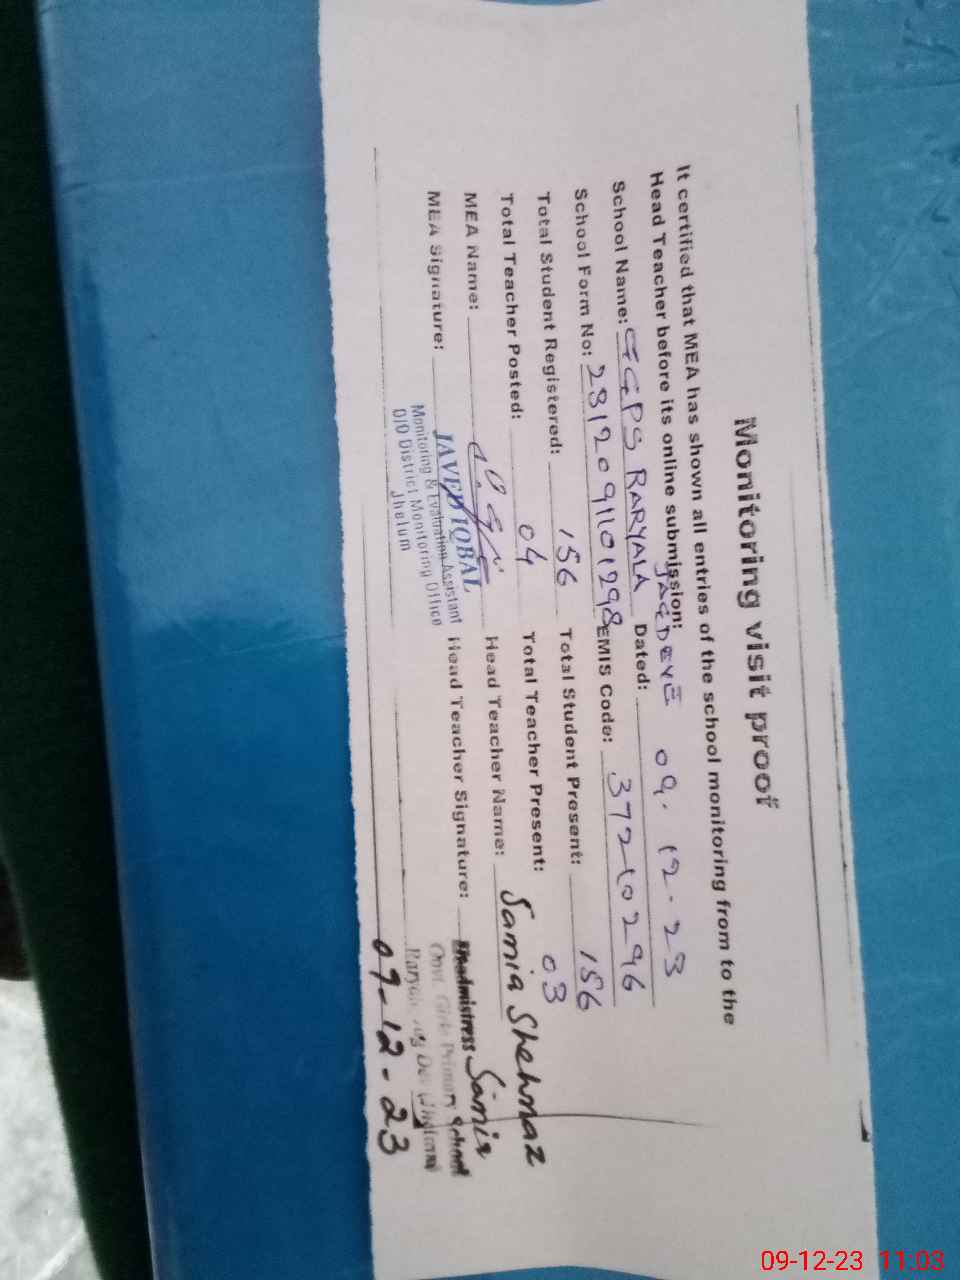 Monitoring visit proof
It certified that MEA has shown all entries of the school monitoring from to the
Head Teacher before its online submission:
School Name: GGPS RARYALA Dated: 09.12.23
School Form No: EMIS Code: 37210296
Total Student Registered: 156 Total Student Present: 156
Total Teacher Posted: 04 Total Teacher Present: 03
MEA Name: Head Teacher Name: Samia Shehnaz
MEA Signature: Head Teacher Signature: Samia
JAVED IQBAL
Monitoring & Evaluation Assistant
O/O District Monitoring Office
Jhelum
Headmistress
Govt. Girls Primary School
09-12-23
09-12-23 11:03